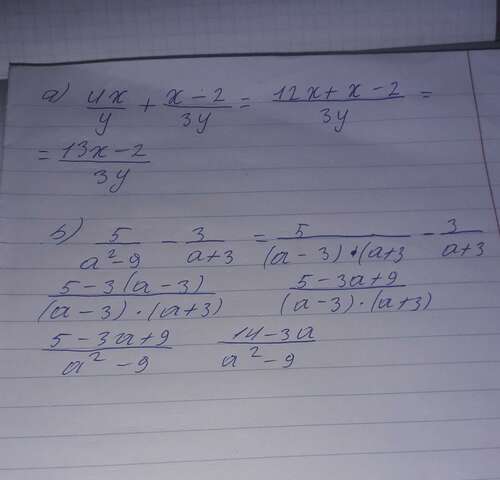 a) 4x/y + x-2/3y = 12x+x-2/3y =
= 13x-2/3y
b) 5/a²-9 - 3/a+3 = 5/(a-3)·(a+3 - 3/a+3
5-3(a-3)/(a-3)·(a+3) 5-3a+9/(a-3)·(a+3)
5-3a+9/a²-9 14-3a/a²-9